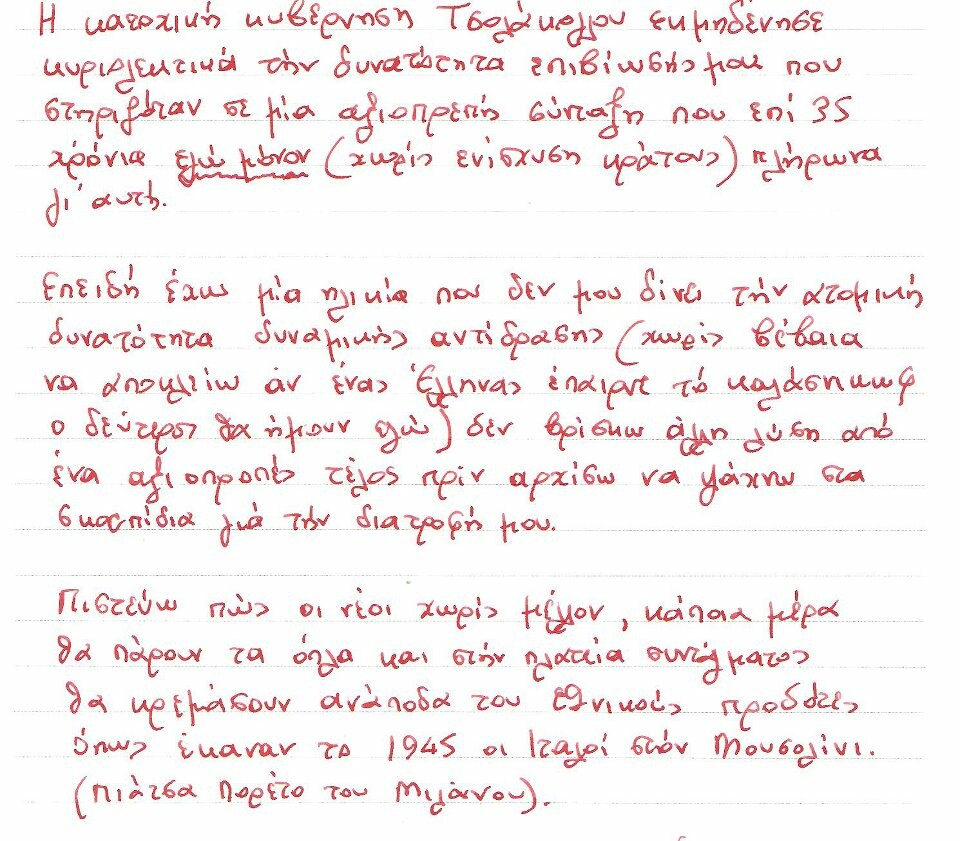 Η κατοχική κυβέρνηση Τσολάκογλου εκμηδένησε
κυριολεκτικά την δυνατότητα επιβίωσής μου που
στηριζόταν σε μία αξιοπρεπή σύνταξη που επί 35
χρόνια εγώ μόνον (χωρίς ενίσχυση κράτους) πλήρωνα
γι' αυτή.
Επειδή έχω μία ηλικία που δεν μου δίνει την ατομική
δυνατότητα δυναμικής αντίδρασης (χωρίς βέβαια
να αποκλείω αν ένας Έλληνας έπαιρνε το καλάσηκωφ
ο δεύτερος θα ήμουν εγώ) δεν βρίσκω άλλη λύση από
ένα αξιοπρεπές τέλος πριν αρχίσω να ψάχνω στα
σκουπίδια γιά την διατροφή μου.
Πιστεύω πώς οι νέοι χωρίς μέλλον, κάποια μέρα
θα πάρουν τα όπλα και στην πλατεία συντάγματος
θα κρεμάσουν ανάποδα του εθνικούς προδότες
όπως έκαναν το 1945 οι Ιταλοί στόν Μουσολίνι.
(Πιάτσα Πορέτο του Μιλάνου).